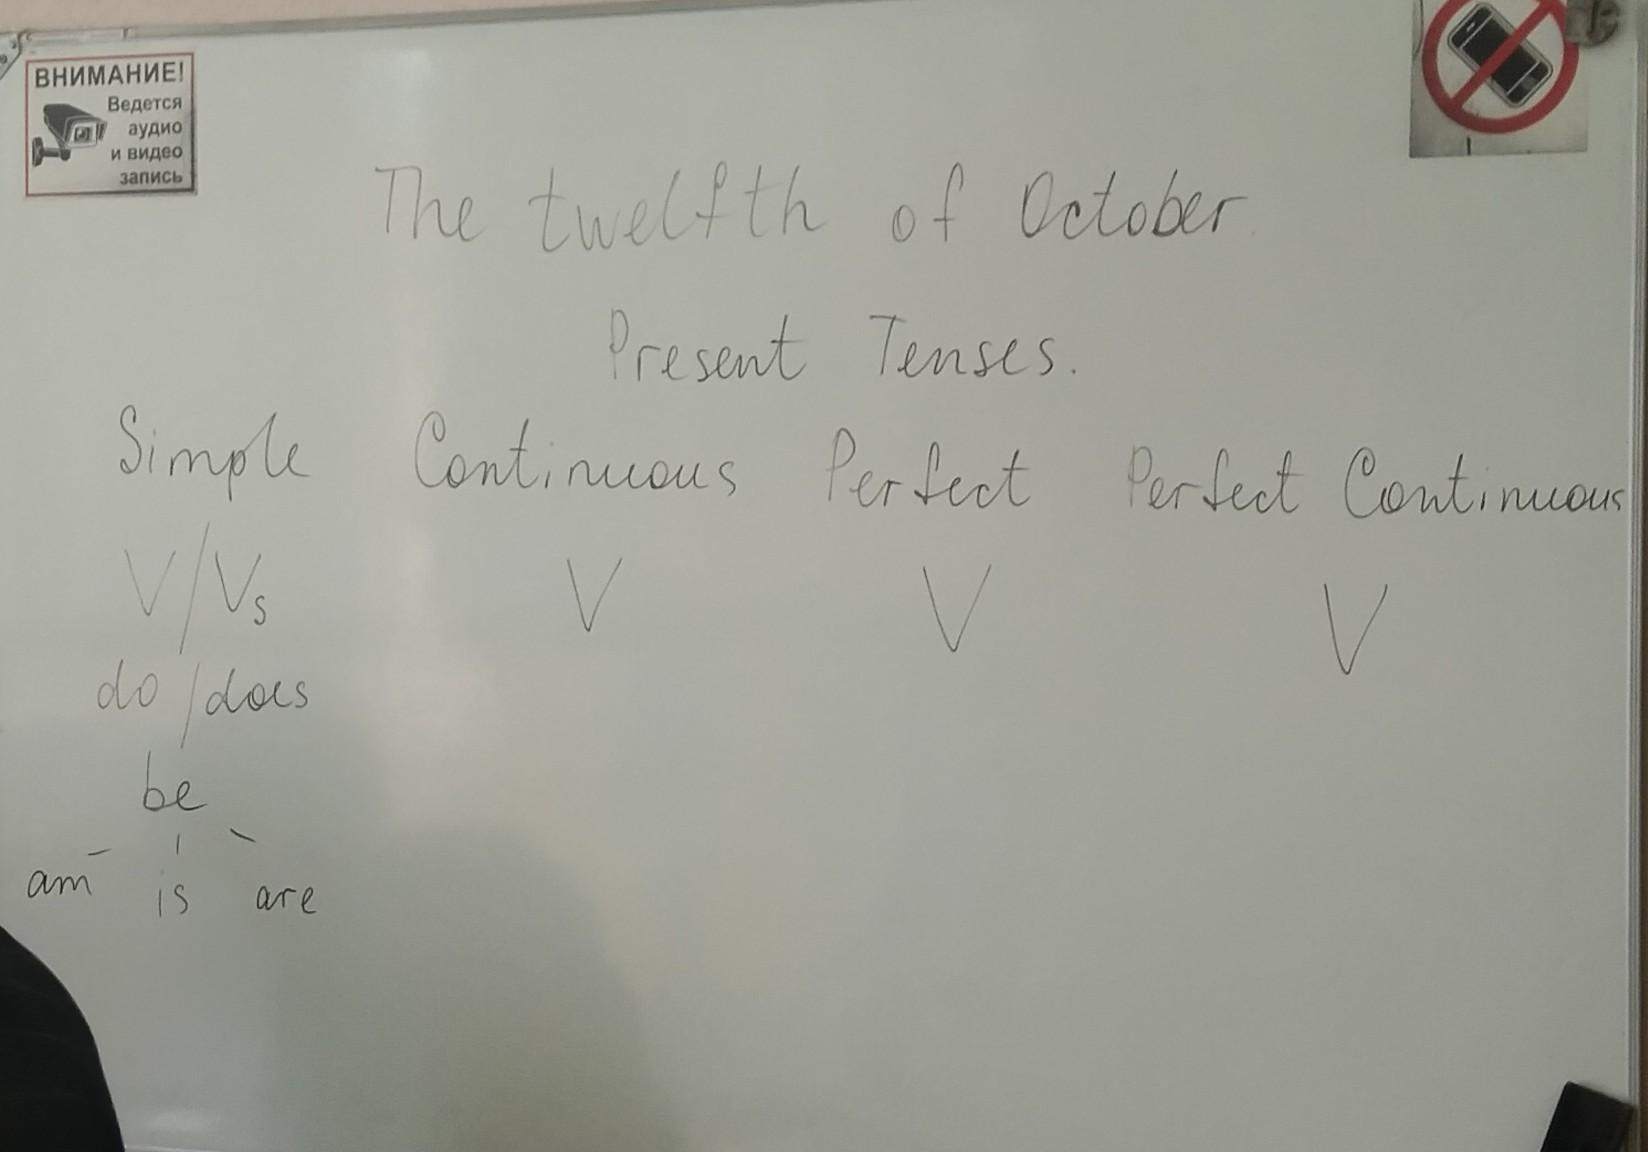 ВНИМАНИЕ!
Ведется
аудио
и видео
запись
The twelfth of October.
Present Tenses.
Simple Continuous Perfect Perfect Continuous
V/Vs V V V
do/does
be
am is are